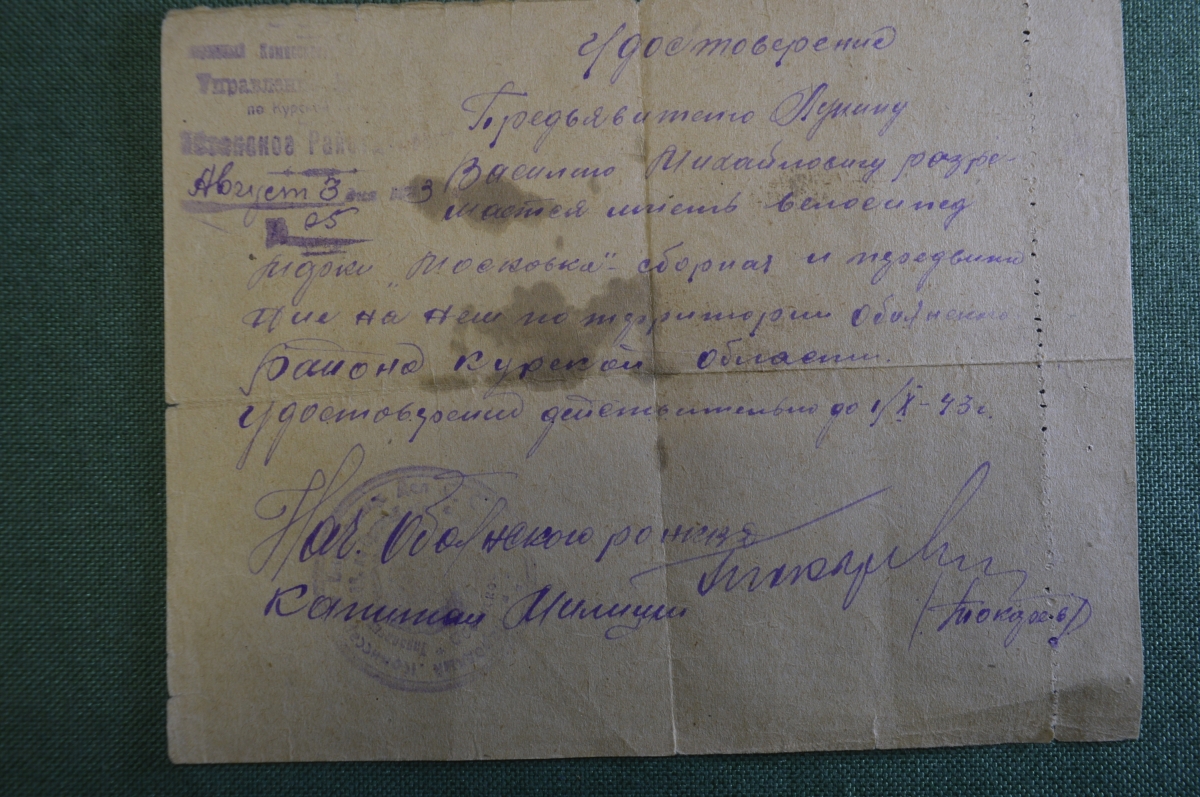 Удостоверение
Управлен
по Курской
Август 3 дня 3
05
Предъявителю Лукину
Василию Михайловичу разре-
шается иметь велосипед
марки "Московка" - сборная и передвиже
ние на нем по территории Обоянского
района Курской области.
Удостоверение действительно до 1/X-43 г.
Нач. Обоянского
Капитан Милиции
(Токарев)